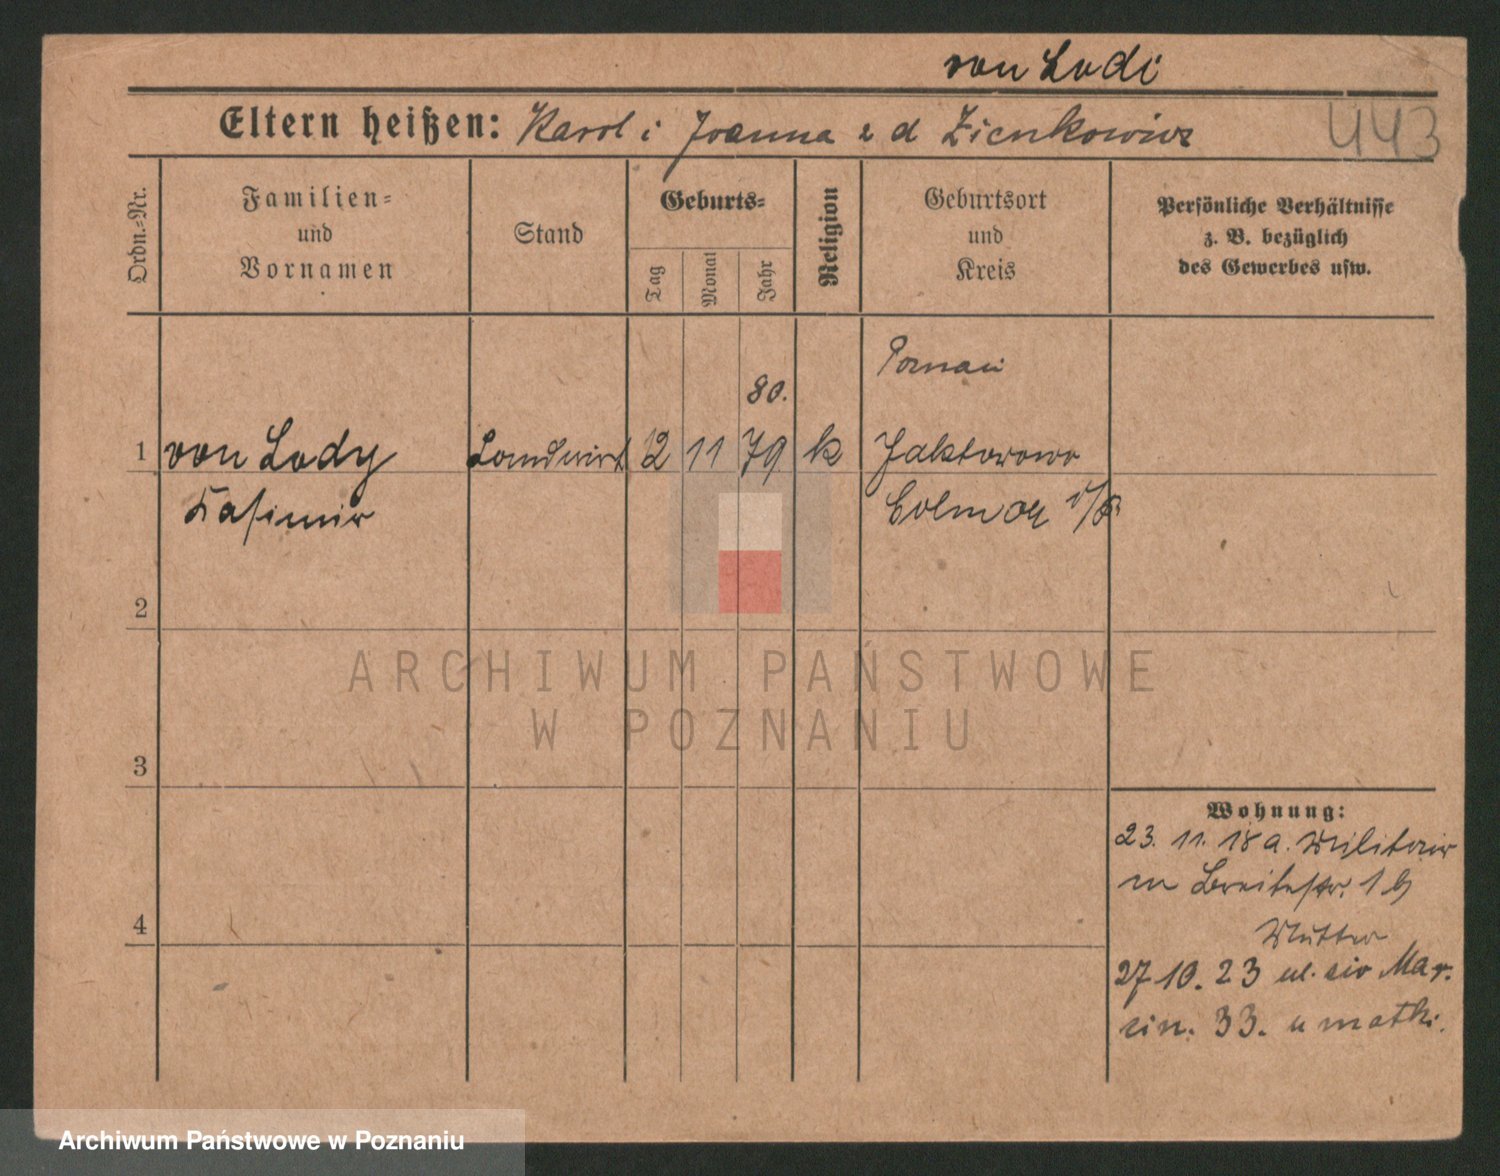 von Lodi
Eltern heißen: Karol i Joanna z d Zienkowicz
443
Ordn.-Nr.
Familien-
und
Vornamen
Stand
Geburts-
Tag
Monat
Jahr
Religion
Geburtsort
und
Kreis
Persönliche Verhältnisse
z. B. bezüglich
des Gewerbes usw.
Poznań
80.
1 von Lody Landwirt 12 11 79 k Jaktorowo
Kasimir Colmar i/P
2
ARCHIWUM PAŃSTWOWE
W POZNANIU
3
Wohnung:
23. 11. 18 a. Militair
n Breitestr. 1 b
Mutter
4
27 10. 23 ul. św Mar.
cin. 33. u matki.
Archiwum Państwowe w Poznaniu